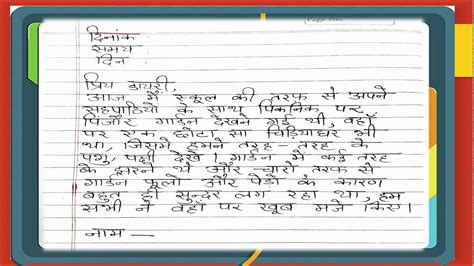 दिनांक
समय
दिन :
प्रिय डायरी,
आज मैं स्कूल की तरफ से अपने
सहपाठियों के साथ पिकनिक पर
पिंजौर गार्डन देखने गई थी, वहाँ
पर एक छोटा सा चिड़ियाघर भी
था, जिसमे हमने तरह - तरह के
पशु, पक्षी देखे। गार्डन में कई तरह
के झरने थे और चारों तरफ से
गार्डन फूलों और पेडों के कारण
बहुत ही सुन्दर लग रहा था, हम
सभी ने वहाँ पर खूब मजे किए।
नाम —